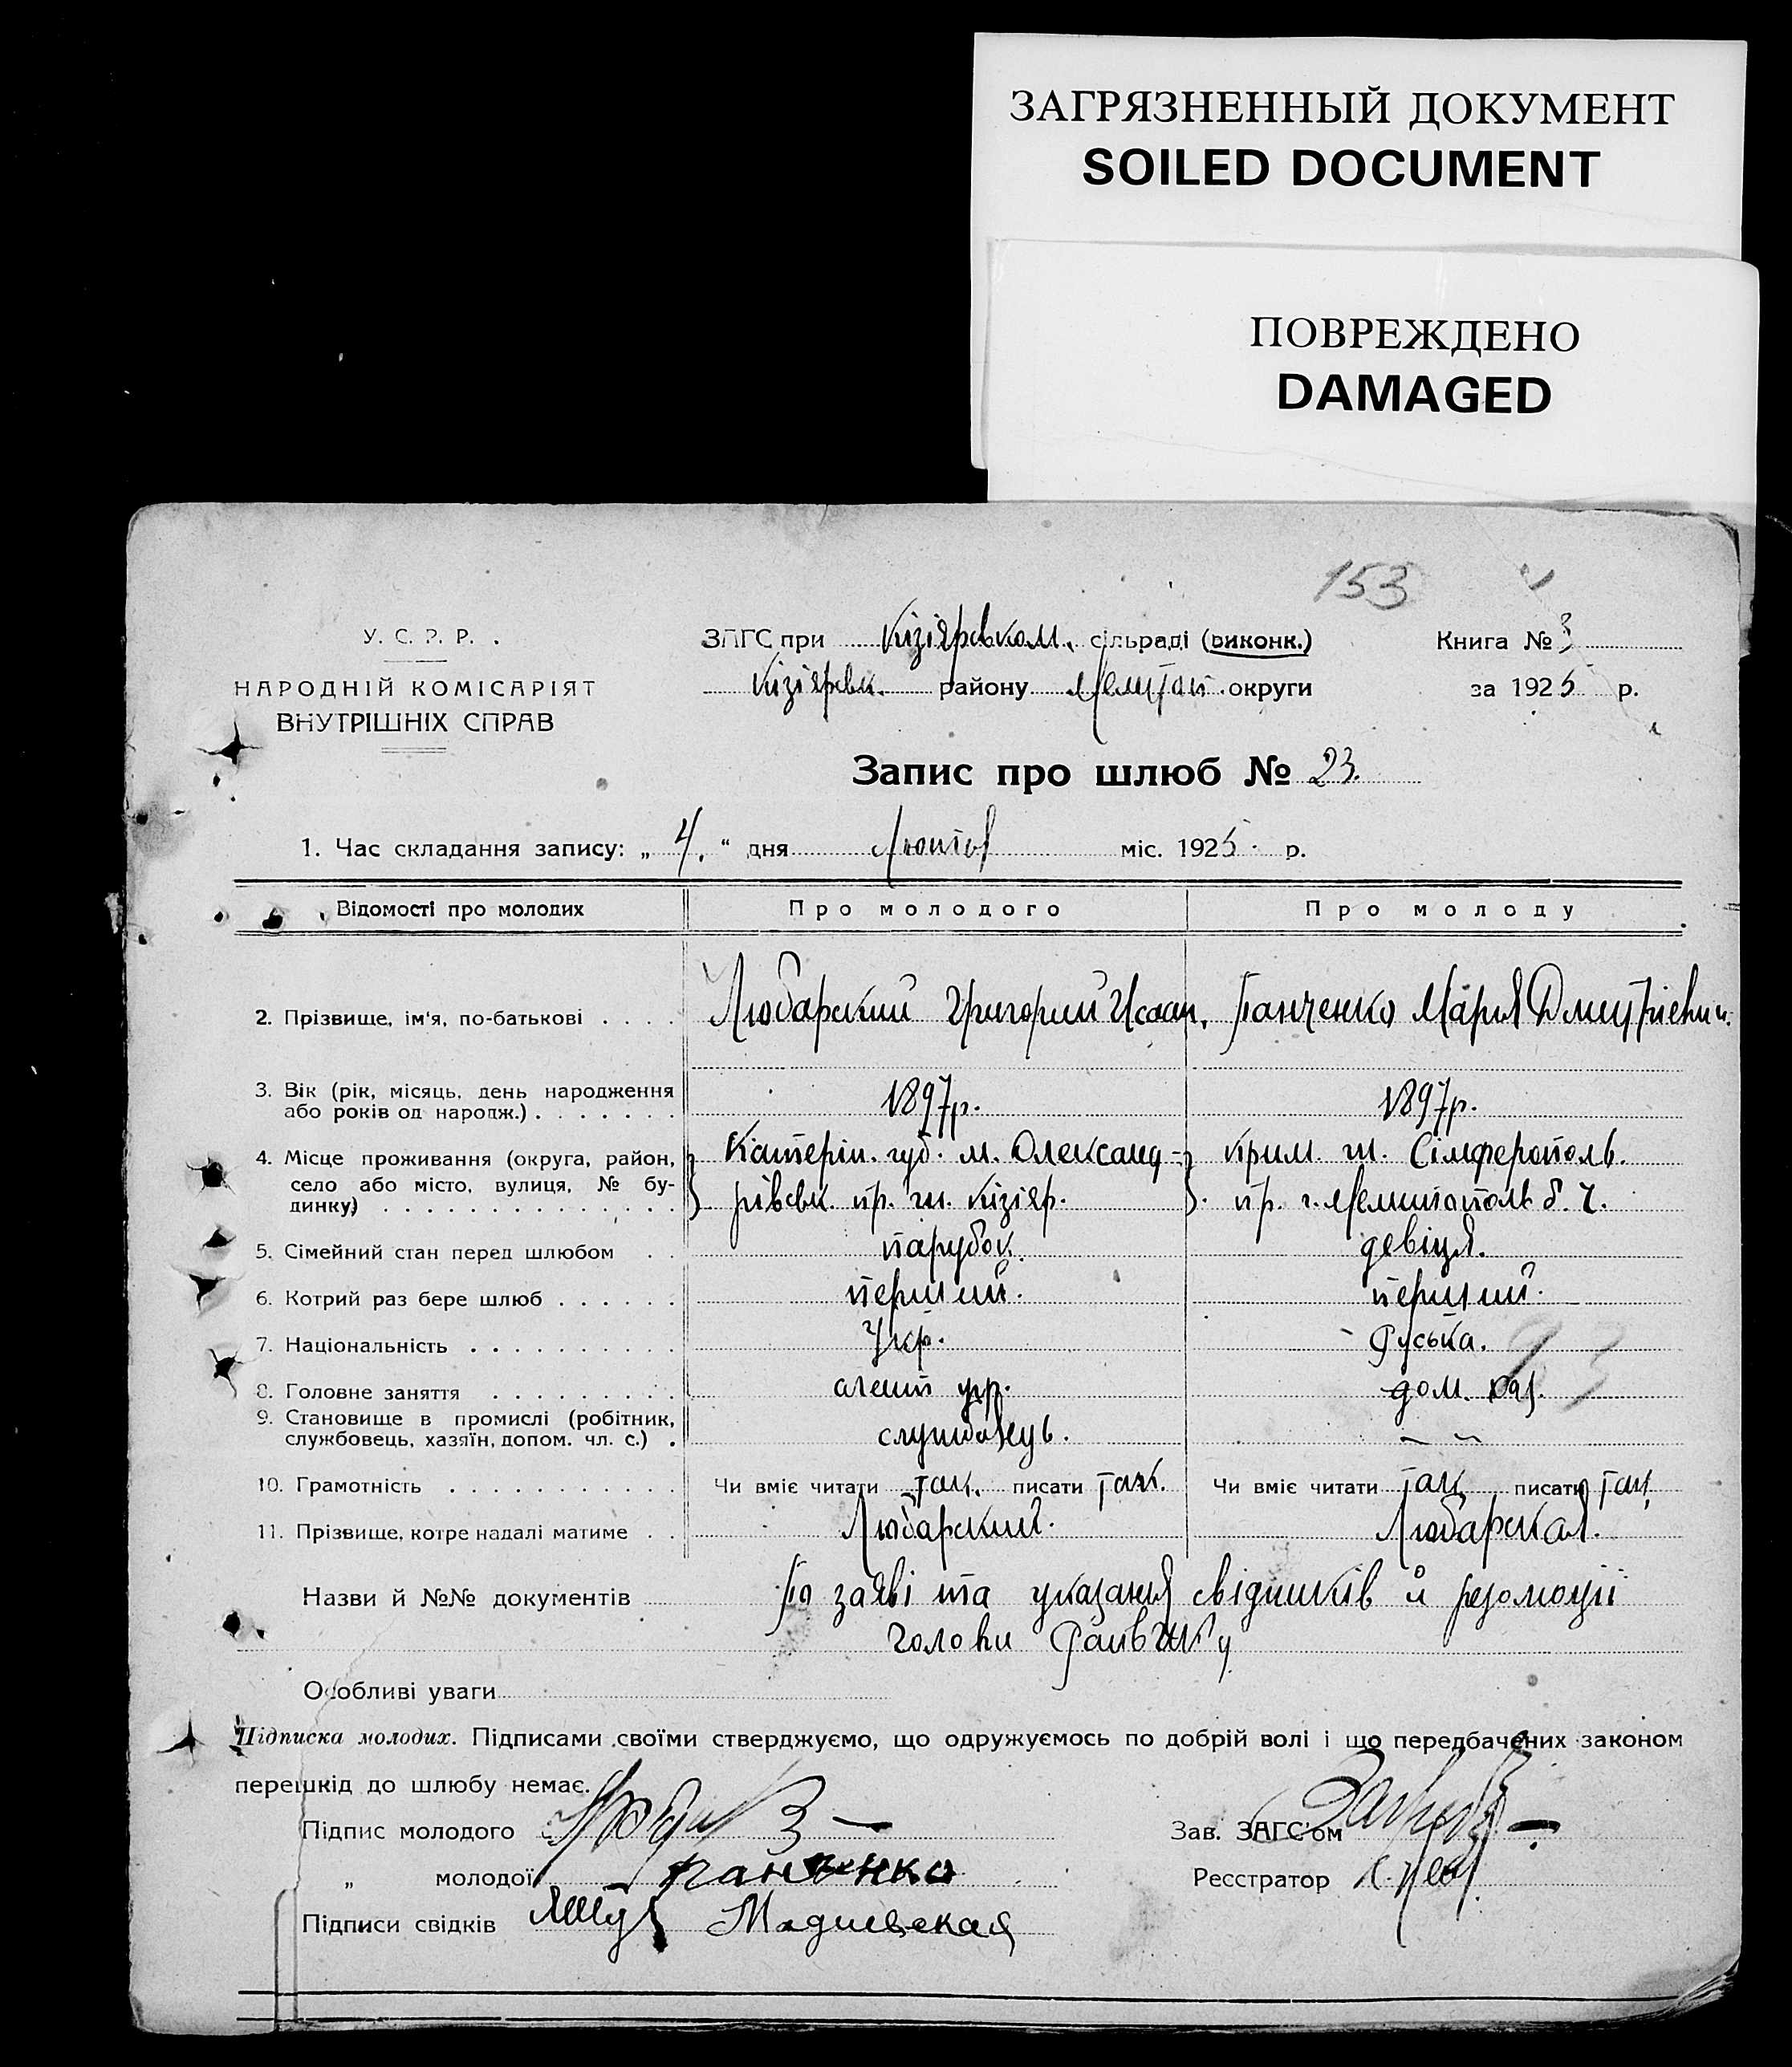 ЗАГРЯЗНЕННЫЙ ДОКУМЕНТ
SOILED DOCUMENT
ПОВРЕЖДЕНО
DAMAGED
153
У. С. Р. Р.
НАРОДНІЙ КОМІСАРІЯТ
ВНУТРІШНІХ СПРАВ
ЗАГС при Кізіярськом. сільраді (виконк.)
Кізіярськ. району Меліто округи
Книга № 3
за 1925 р.
Запис про шлюб № 23.
1. Час складання запису: „ 4. “ дня Лютов міс. 1925. р.
Відомості про молодих Про молодого Про молоду
2. Прізвище, ім'я, по-батькові . . . . Любарский Григорий Исаак. Панченко Мария Дмитриевн.
3. Вік (рік, місяць, день народження
або років од народж.) . . . . . . . 1897р. 1897р.
4. Місце проживання (округа, район, Катерін. губ. м. Олександ- крим. м. Сімферополь.
село або місто, вулиця, № бу-
динку) . . . . . . . . . . . . . . рівськ. пр. м. Кізіяр. пр. г. Мелитополь б. ч.
5. Сімейний стан перед шлюбом . . парубок. девіця.
6. Котрий раз бере шлюб . . . . . . перший. перший.
7. Національність . . . . . . . . . . Укр. Руська.
8. Головне заняття . . . . . . . . . агент дом. хаз.
9. Становище в промислі (робітник,
службовець, хазяїн, допом. чл. с.) . службовець. — „ —
10. Грамотність . . . . . . . . . . . Чи вміє читати так. писати так. Чи вміє читати так писати так.
11. Прізвище, котре надалі матиме . . Любарский. Любарская.
Назви й №№ документів По заяві та указания свідників й резолюції
голови Райвику
Особливі уваги
Підписка молодих. Підписами своїми стверджуємо, що одружуємось по добрій волі і що передбачених законом
перешкід до шлюбу немає.
Підпис молодого
Зав. ЗАГС'ом
„ молодої Панченко
Реєстратор
Підписи свідків